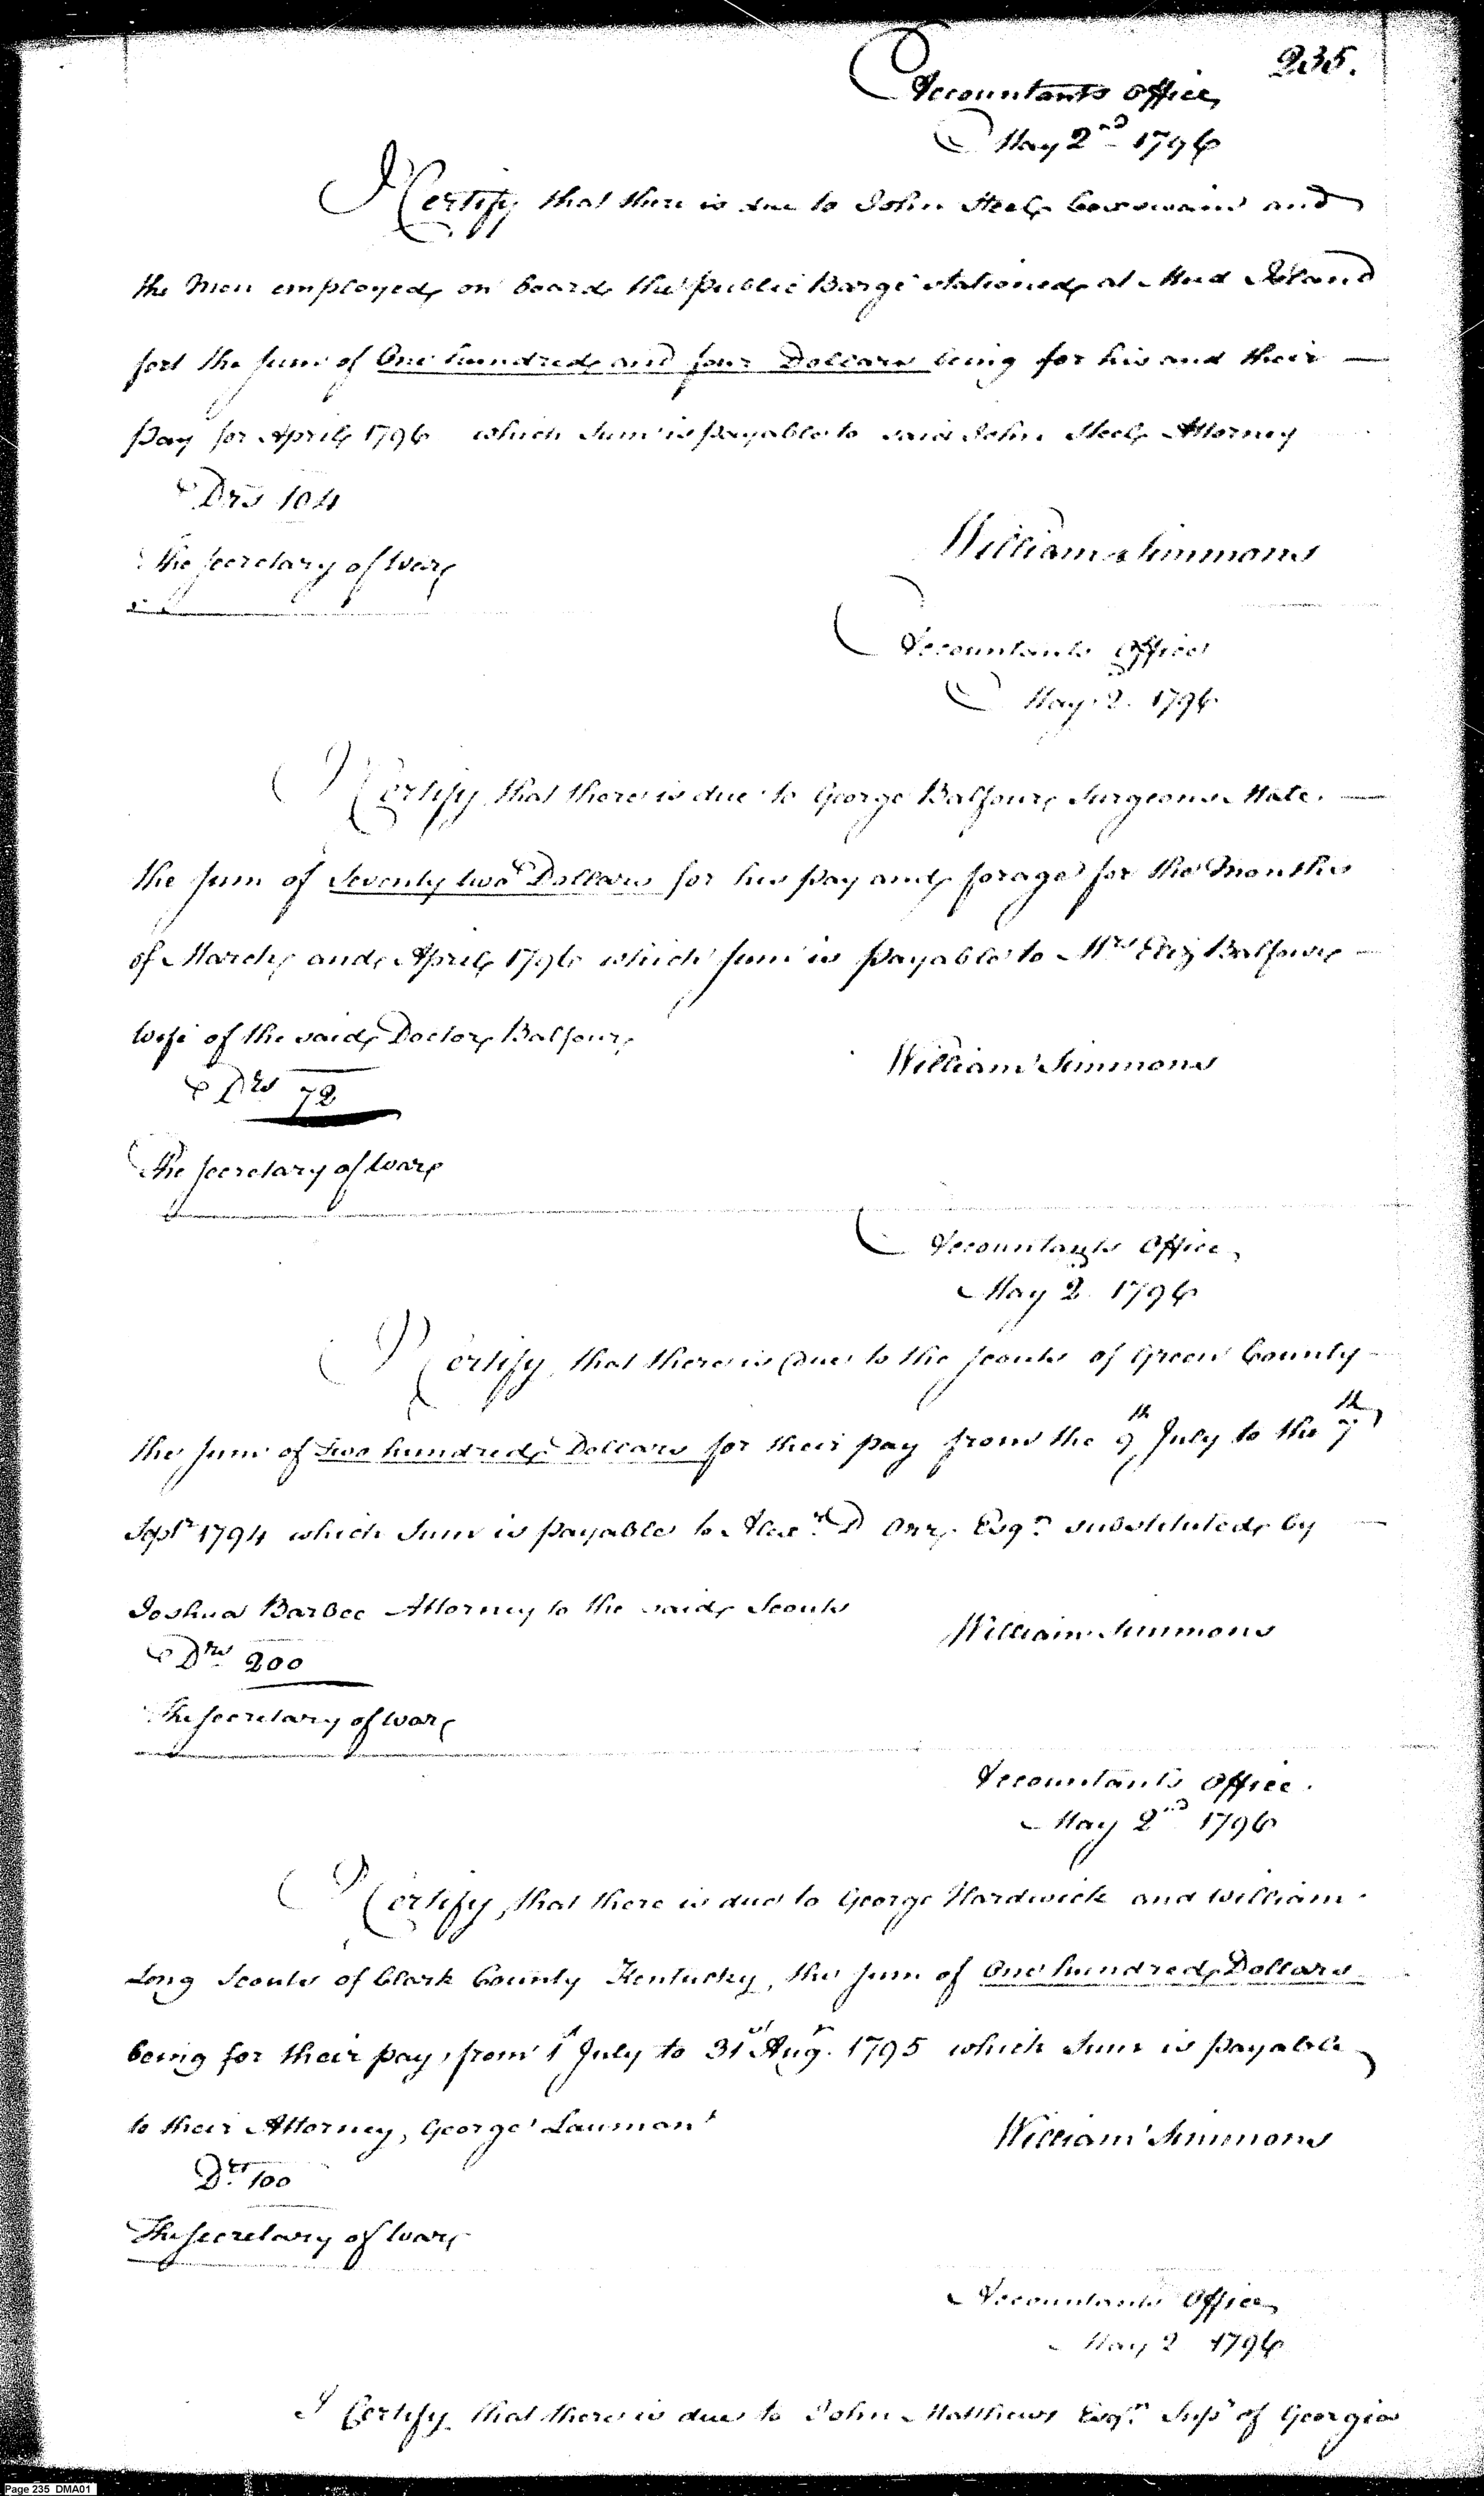 235.
Accountants Office
May 2nd 1796
I Certify that there is due to John Steel Coxswain and
the Men employed on board the public Barge stationed at Mud Island
fort the sum of One hundred and four Dollars being for his and their
pay for April 1796 which sum is payable to said John Steel Attorney
Drs 104
The Secretary of War
William Simmons
Accountants Office
May 2d 1796
I Certify that there is due to George Balfour Surgeons Mate.
the sum of Seventy two Dollars for his pay and forage for the Months
of March and April 1796 which sum is payable to Mrs Eliz Balfour
wife of the said Doctor Balfour
William Simmons
Drs 72
The Secretary of War
Accountants Office
May 2d 1796
I Certify that there is due to the scouts of Green County
the sum of Two hundred Dollars for their pay from the 9th July to the 7th
Septr 1794 which sum is payable to Alexr D Orr Esqr substituted by
Joshua Barbee Attorney to the said Scouts
William Simmons
Drs 200
The Secretary of War
Accountants Office.
May 2nd 1796
I Certify that there is due to George Hardwick and William
Long Scouts of Clark County Kentucky, the sum of One hundred Dollars
being for their pay from 1st July to 31st Augt. 1795 which sum is payable
to their Attorney, George Lauman
William Simmons
Drs 100
The Secretary of War
Accountants Office
May 2 1796
I Certify that there is due to John Matthews Esqr. Supr of Georgia
Page 235 DMA01